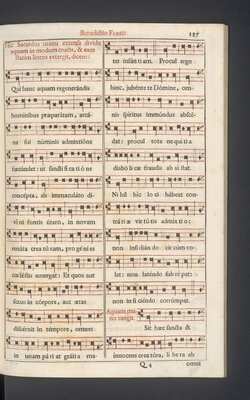 Benedictio Fontis
Hic Sacerdos manu extensa dividit
aquam in modum crucis, & eam
statim linteo extergit, dicens:
Qui hanc aquam regenerándis
hominibus præparátam, arcá-
na sui núminis admixtióne
fœcúndet: ut sanctificatióne
concépta, ab immaculáto di-
víni fontis útero, in novam
renáta creatúram, progénies
cæléstis emérgat: Et quos aut
sexus in córpore, aut ætas
discérnit in témpore, omnes
in unam páriat grátia ma-
197
ter infántiam. Procul ergo
hinc, jubénte te Dómine, om-
nis spíritus immúndus abscé-
dat: procul tota nequítia
diabólicæ fraudis absístat.
Nihil hic loci hábeat con-
tráriæ virtútis admíxtio:
non insidiándo circúmvo-
let: non laténdo subrépat:
non inficiéndo corrúmpat.
Aquam ma-
nu tangit.
Sit hæc sancta &
innocens creatúra, líbera ab
Q 4
omni